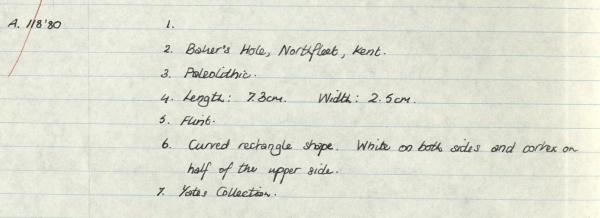 A. 118'80 1.
2. Baker's Hole, Northfleet, Kent.
3. Paleolithic.
4. Length: 7.3cm. Width: 2.5cm.
5. Flint.
6. Curved rectangle shape. White on both sides and cortex on
half of the upper side.
7. Yates Collection.